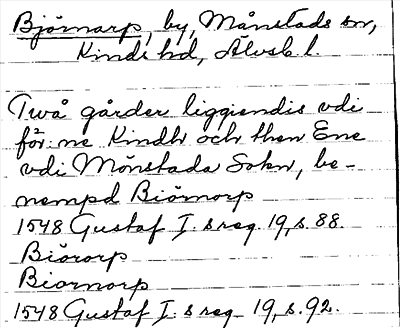 Bjömarp, by, Månstads sn,
Kinds hd, Älvsb. l.
Twå gårder liggiendis vdi
för: ne Kindh och then Ene
vdi Mönstada Sokn, be-
nempd Biörnorp
1548 Gustaf I. s reg. 19, s. 88.
Biörorp
Biornorp
1548 Gustaf I. s reg 19, s. 92.